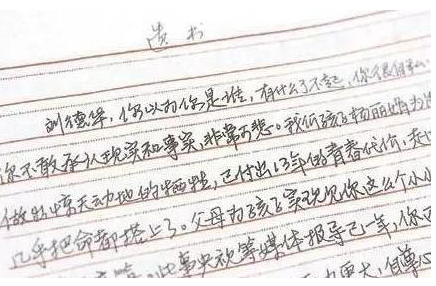 遗书
刘德华，你以为你是谁，有什么了不起，你很自私
你不敢承认现实和事实，非常可悲。我们孩子杨丽娟为
做出惊天动地的牺牲，已付出13年的青春代价，走
几乎把命都搭上了。父母为孩子实现见你这么个小小
此事央视等媒体报导已一年，你
更大，自尊心